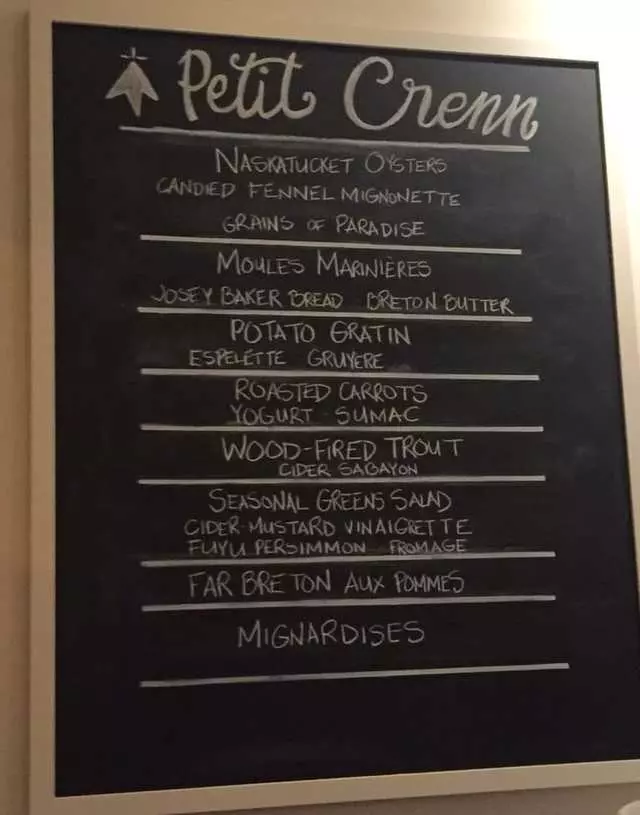 Petit Crenn
NASKATUCKET OYSTERS
CANDIED FENNEL MIGNONETTE
GRAINS OF PARADISE
MOULES MARINIÈRES
JOSEY BAKER BREAD BRETON BUTTER
POTATO GRATIN
ESPELETTE GRUYERE
ROASTED CARROTS
YOGURT SUMAC
WOOD-FIRED TROUT
CIDER SABAYON
SEASONAL GREENS SALAD
CIDER-MUSTARD VINAIGRETTE
FUYU PERSIMMON FROMAGE
FAR BRETON AUX POMMES
MIGNARDISES